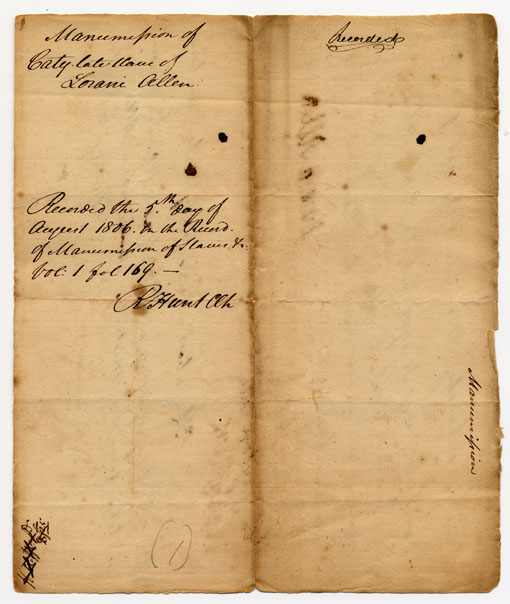 Manumission of
Caty late slave of
Lorani Allen.
Recorded the 5.th day of
August 1806. in the Record.
of Manumission of Slaves &c.
Vol: 1 fol 169. —
R Hunt Clk
Recorded
Manumission